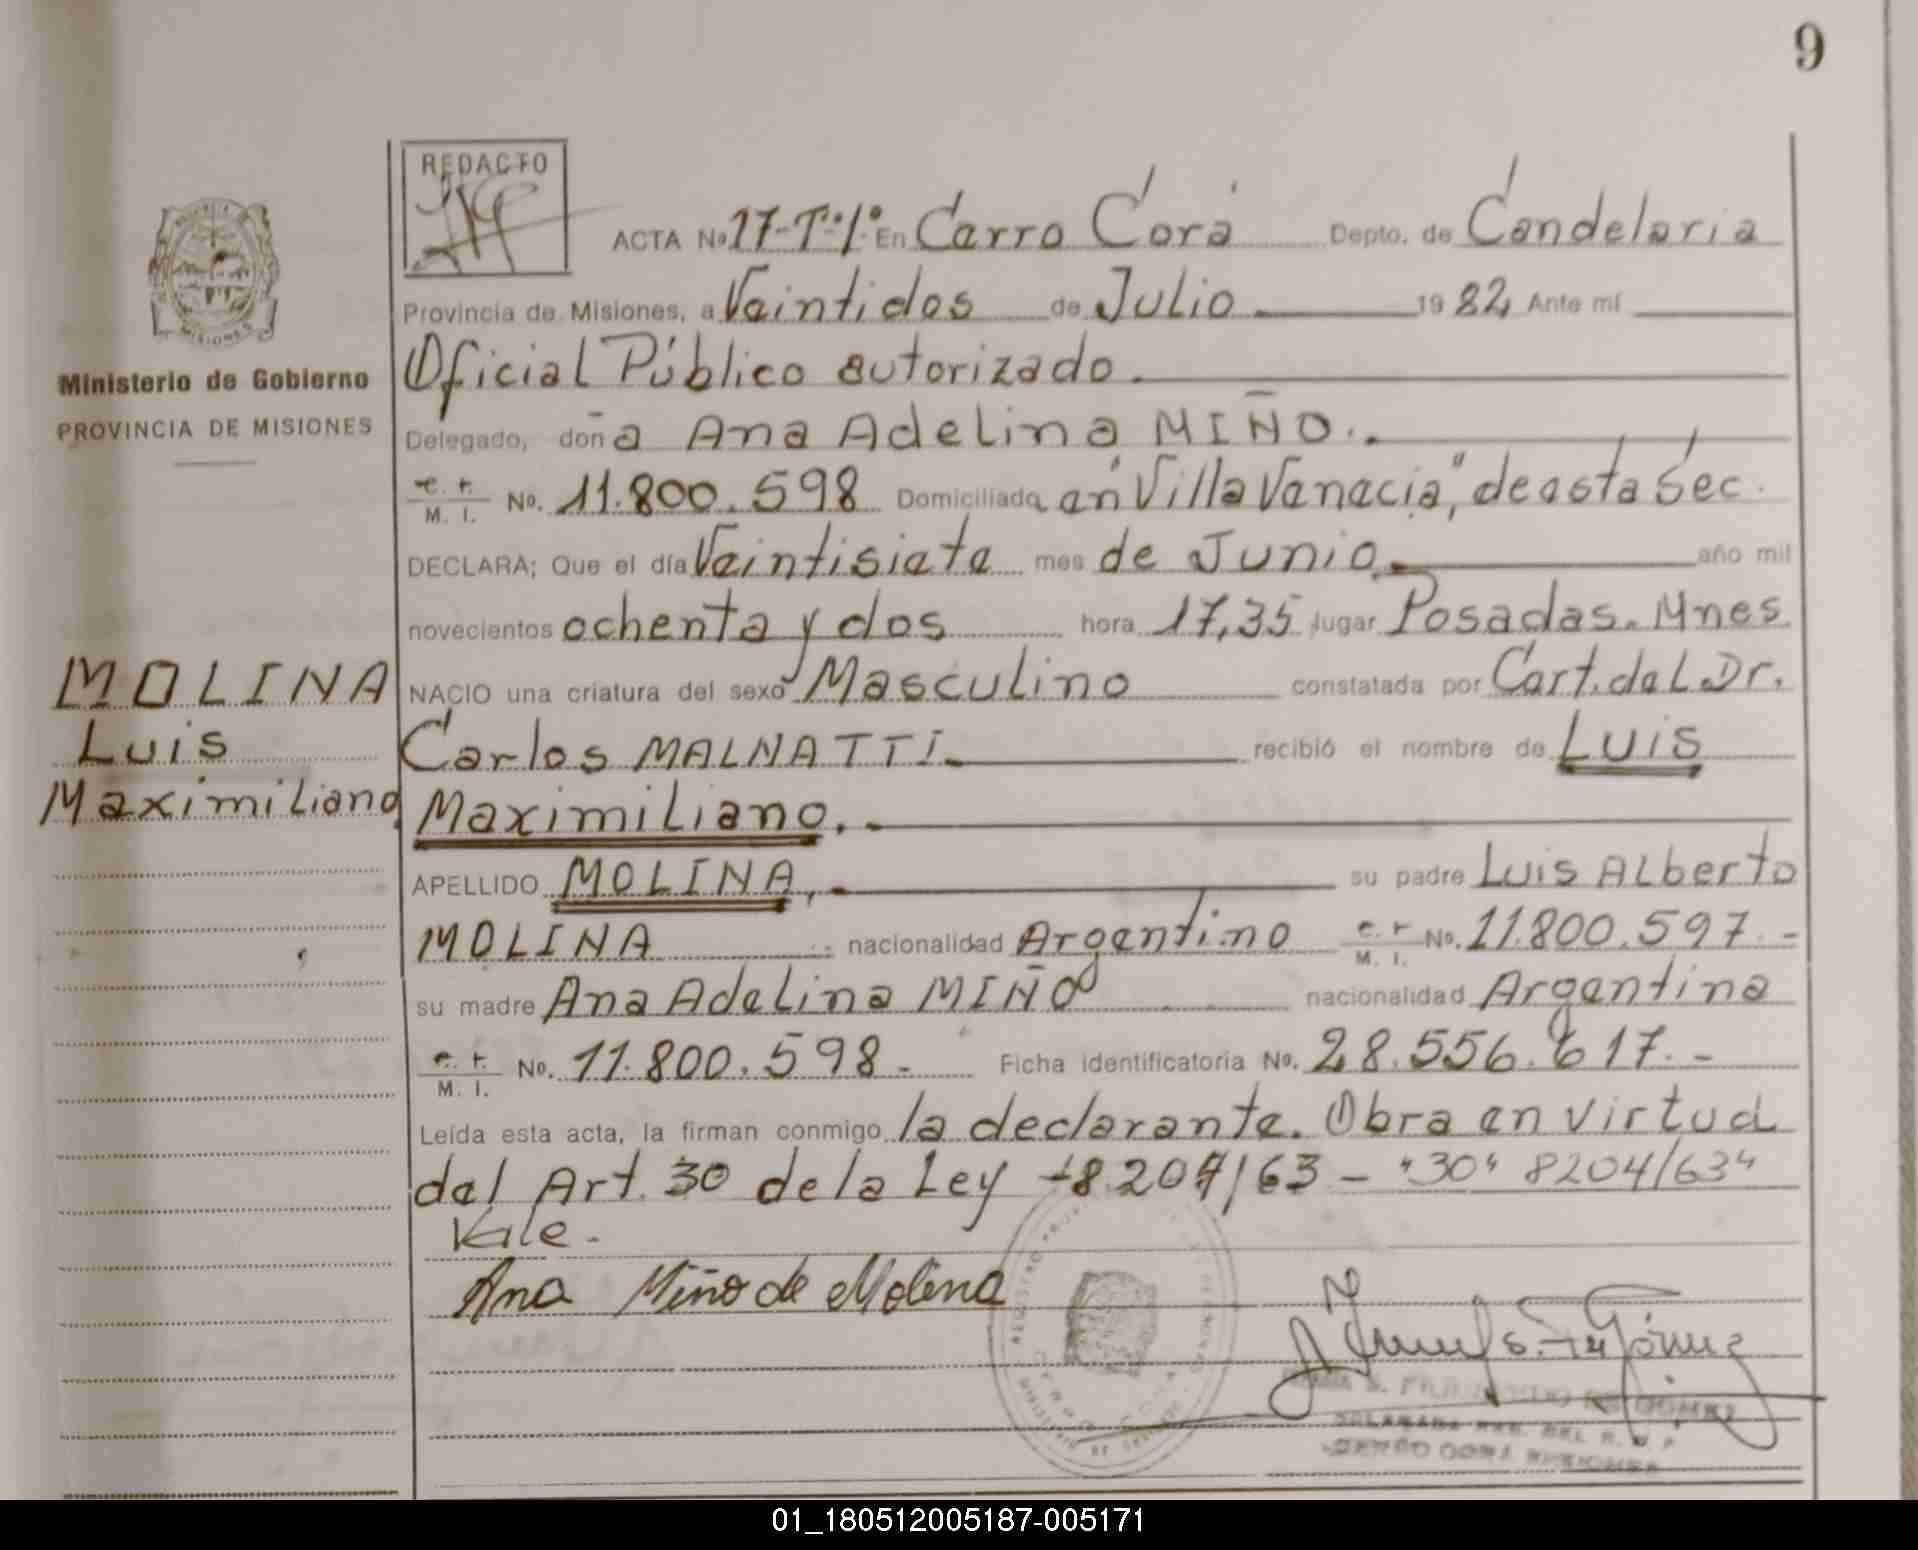 9
REDACTO
ACTA No 17-Tº-1º En Cerro Corá Depto. de Candelaria
Provincia de Misiones, a Veintidos de Julio 1982 Ante mí
Oficial Público autorizado.
Ministerio de Gobierno
PROVINCIA DE MISIONES
MISIONES
Delegado, doña Ana Adelina MIÑO..
C. I. M. I. No. 11.800.598 Domiciliada en "Villa Venecia", de esta Sec.
DECLARA; Que el día Veintisiete mes de Junio año mil
novecientos ochenta y dos hora 17,35 lugar Posadas. Mnes.
MOLINA
Luis
Maximiliano
NACIO una criatura del sexo Masculino constatada por Cert. del Dr.
Carlos MALNATTI recibió el nombre de Luis
Maximiliano.
APELLIDO MOLINA, su padre Luis Alberto
MOLINA nacionalidad Argentino C. I. M. I. No. 11.800.597.-
su madre Ana Adelina MIÑO nacionalidad Argentina
C. I. M. I. No. 11.800.598.- Ficha identificatoria No. 28.556.617.-
Leída esta acta, la firman conmigo la declarante. Obra en virtud
del Art. 30 de la Ley 8204/63 - "30" 8204/63"
Vale.-
Ana Miño de Molina
CERRO CORÁ
DE GOMEZ
DEL R.
CERRO CORA MISIONES
01_180512005187-005171